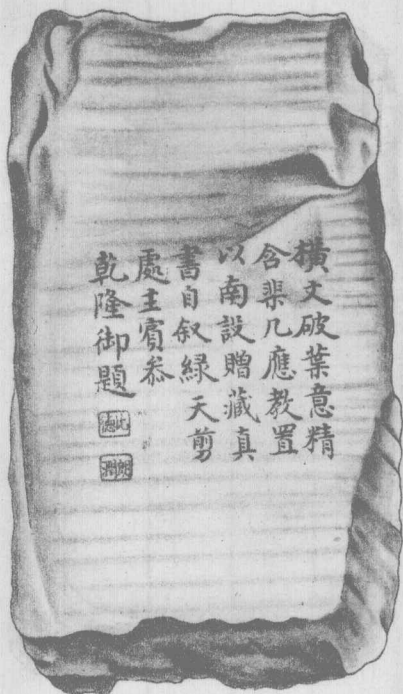 橫文破葉意精
含棐几應教置
以南設贈藏真
書自叙綠天剪
處主賓叅
乾隆御題
比德
朗潤